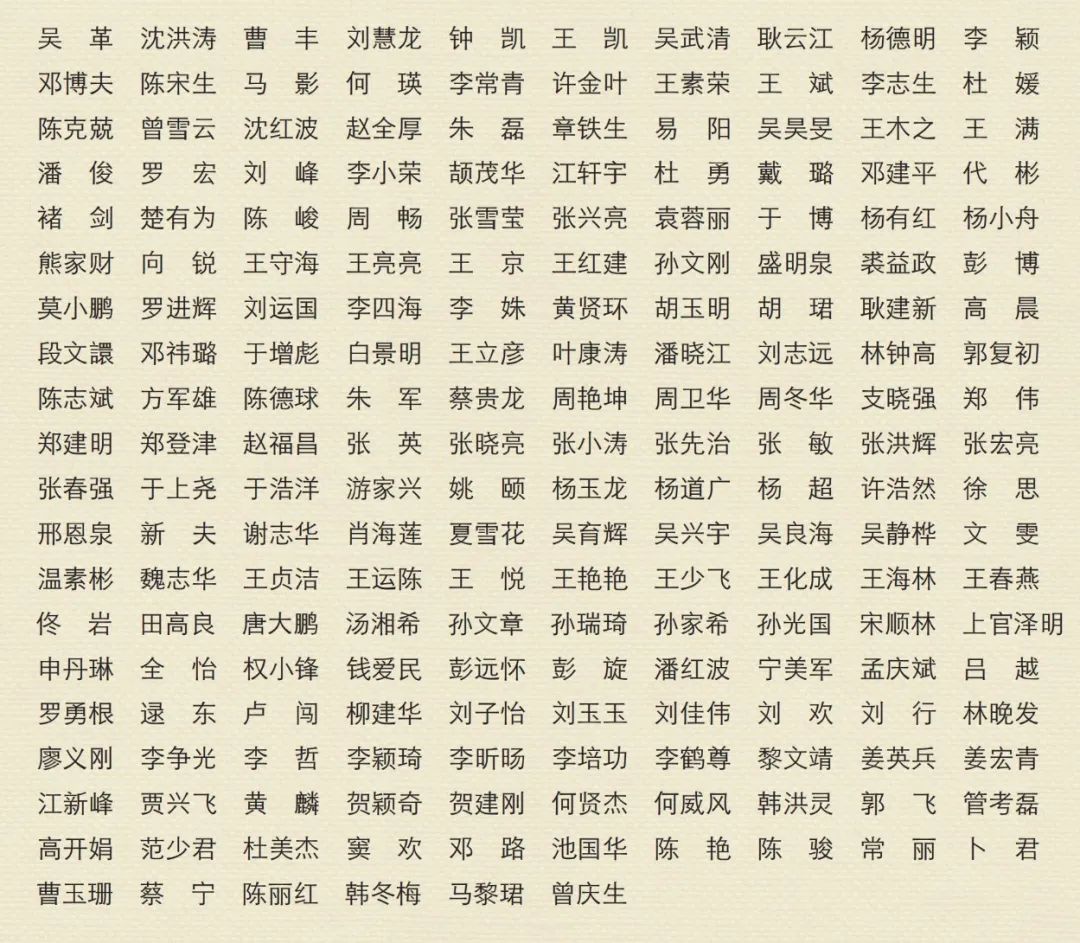 吴　革 沈洪涛 曹　丰 刘慧龙 钟　凯 王　凯 吴武清 耿云江 杨德明 李　颖
邓博夫 陈宋生 马　影 何　瑛 李常青 许金叶 王素荣 王　斌 李志生 杜　媛
陈克兢 曾雪云 沈红波 赵全厚 朱　磊 章铁生 易　阳 吴昊旻 王木之 王　满
潘　俊 罗　宏 刘　峰 李小荣 颉茂华 江轩宇 杜　勇 戴　璐 邓建平 代　彬
褚　剑 楚有为 陈　峻 周　畅 张雪莹 张兴亮 袁蓉丽 于　博 杨有红 杨小舟
熊家财 向　锐 王守海 王亮亮 王　京 王红建 孙文刚 盛明泉 裘益政 彭　博
莫小鹏 罗进辉 刘运国 李四海 李　姝 黄贤环 胡玉明 胡　珺 耿建新 高　晨
段文譞 邓祎璐 于增彪 白景明 王立彦 叶康涛 潘晓江 刘志远 林钟高 郭复初
陈志斌 方军雄 陈德球 朱　军 蔡贵龙 周艳坤 周卫华 周冬华 支晓强 郑　伟
郑建明 郑登津 赵福昌 张　英 张晓亮 张小涛 张先治 张　敏 张洪辉 张宏亮
张春强 于上尧 于浩洋 游家兴 姚　颐 杨玉龙 杨道广 杨　超 许浩然 徐　思
邢恩泉 新　夫 谢志华 肖海莲 夏雪花 吴育辉 吴兴宇 吴良海 吴静桦 文　雯
温素彬 魏志华 王贞洁 王运陈 王　悦 王艳艳 王少飞 王化成 王海林 王春燕
佟　岩 田高良 唐大鹏 汤湘希 孙文章 孙瑞琦 孙家希 孙光国 宋顺林 上官泽明
申丹琳 全　怡 权小锋 钱爱民 彭远怀 彭　旋 潘红波 宁美军 孟庆斌 吕　越
罗勇根 逯　东 卢　闯 柳建华 刘子怡 刘玉玉 刘佳伟 刘　欢 刘　行 林晚发
廖义刚 李争光 李　哲 李颖琦 李昕旸 李培功 李鹤尊 黎文靖 姜英兵 姜宏青
江新峰 贾兴飞 黄　麟 贺颖奇 贺建刚 何贤杰 何威风 韩洪灵 郭　飞 管考磊
高开娟 范少君 杜美杰 窦　欢 邓　路 池国华 陈　艳 陈　骏 常　丽 卜　君
曹玉珊 蔡　宁 陈丽红 韩冬梅 马黎珺 曾庆生